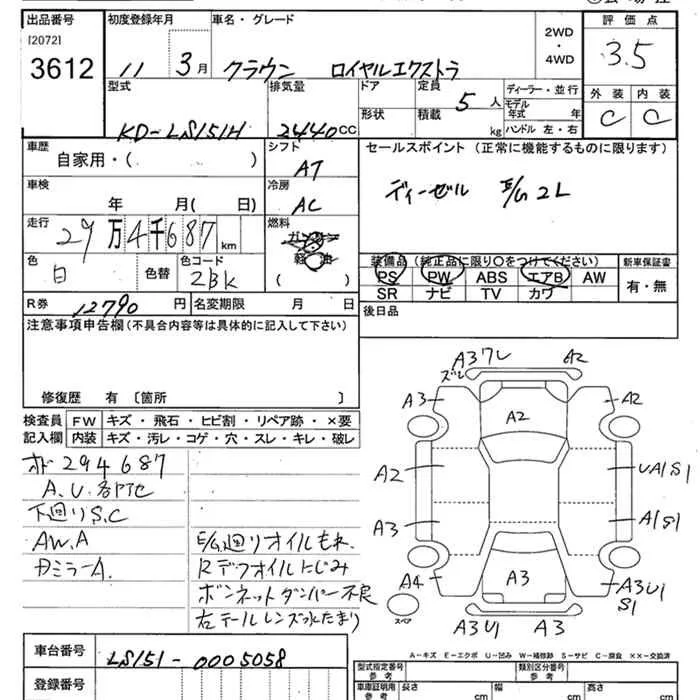 出品番号
[2072]
3612
初度登録年月
11 3月
車名・グレード
クラウン ロイヤルエクストラ
2WD
・
4WD
評価点
3.5
外装 内装
C C
型式
KD-LS151H
排気量
2440CC
ドア
形状
定員
5人
積載
kg
ディーラー・並行
モデル年式 年
ハンドル 左・右
車歴
自家用・( )
シフト
AT
車検
年 月( 日)
冷房
AC
走行
29万4千687km
燃料
ガソリン
軽油
( )
色
白
色替
色コード
2BK
R券
12790円
名変期限 月 日
セールスポイント(正常に機能するものに限ります)
ディーゼル E/G 2L
装備品(純正品に限り○をつけてください)
PS PW ABS エアB AW
SR ナビ TV カワ
新車保証書
有・無
後日品
注意事項申告欄(不具合内容等は具体的に記入して下さい)
修復歴 有〔箇所 〕
検査員記入欄
FW キズ・飛石・ヒビ割・リペア跡・×要
内装 キズ・汚レ・コゲ・穴・スレ・キレ・破レ
オド294687
A.U.各所他
下回りS.C
AW.A
Dミラー A.
E/G廻りオイルもれ
Rデフオイルにじみ
ボンネットダンパー不良
左テールレンズ水たまり
A3ワレ
ズレ
A2
A3
A2
A2
A2
UA1S1
A3
A1S1
A4
A3
A3U1
S1
スペア
A3U1
A3
A-キズ E-エクボ U-凹み W-補修跡 S-サビ C-腐食 ××-交換済
車台番号
LS151-0005058
登録番号
型式指定番号
参考
類別区分番号
参考
車庫証明用
参考
長さ cm
幅 cm
高さ cm